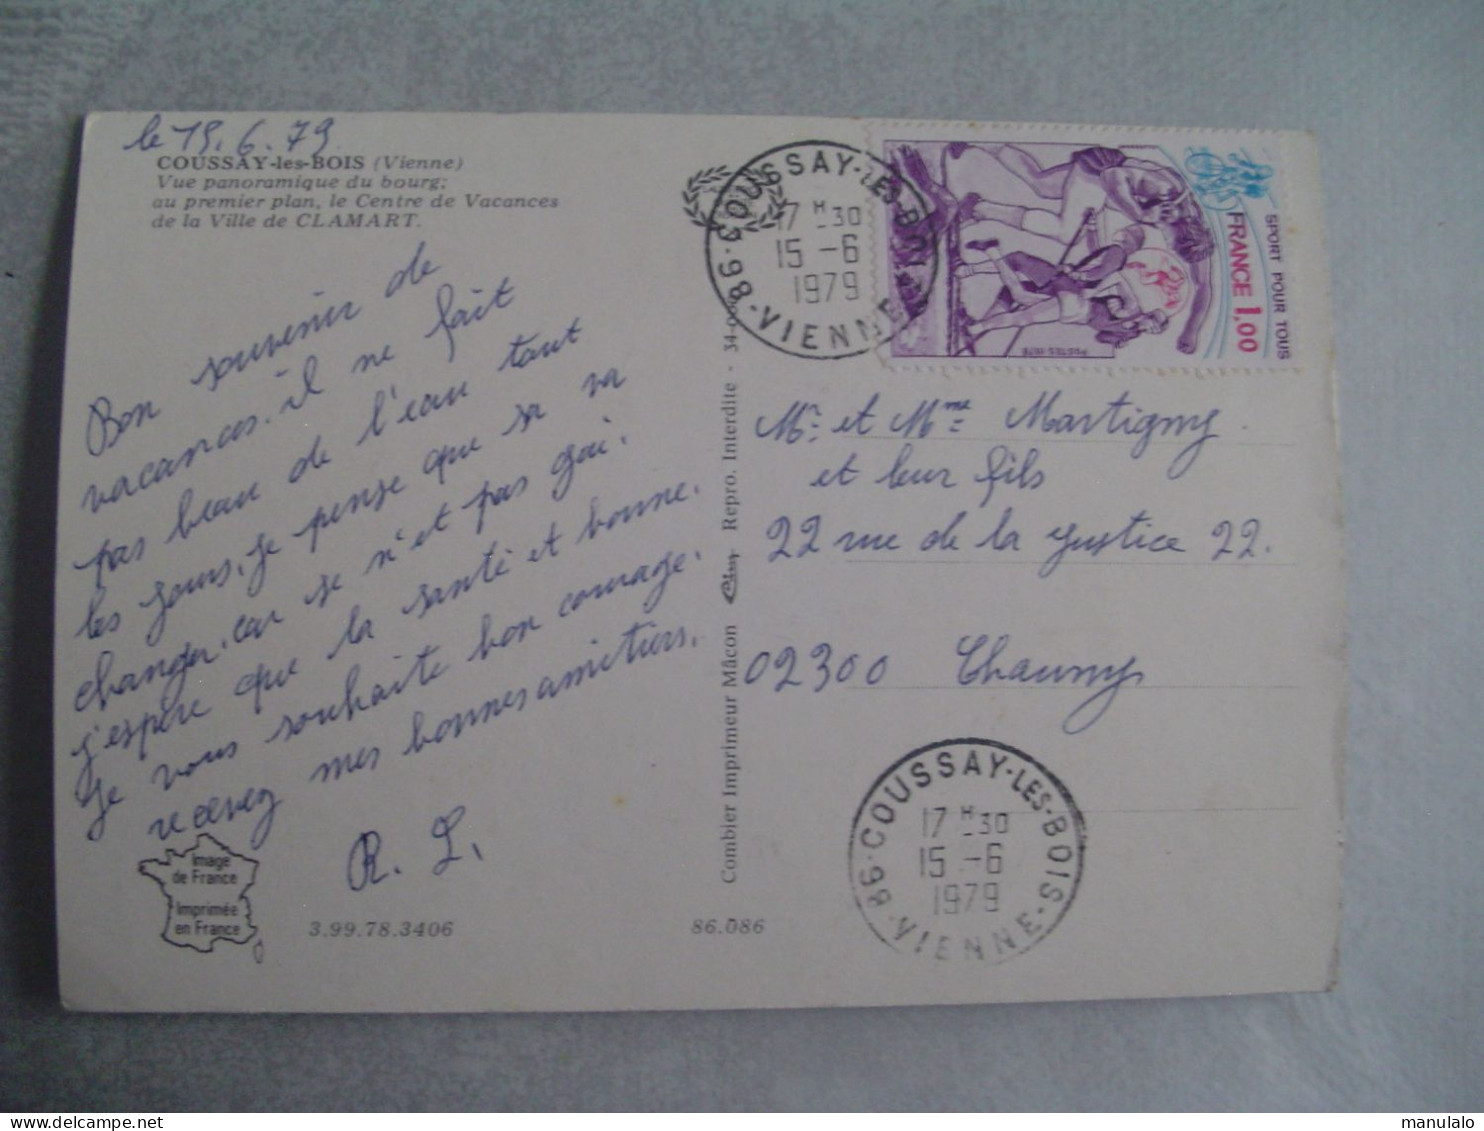 le 15.6.79
COUSSAY-les-BOIS (Vienne)
Vue panoramique du bourg;
au premier plan, le Centre de Vacances
de la Ville de CLAMART.
Bon souvenir de
vacances. il ne fait
pas beau de l'eau tout
les jours. je pense que sa va
changer. car se n'et pas gai.
j'espère que la santé et bonne.
je vous souhaite bon courage.
recevez mes bonnes amitiers.
R. L.
Image
de France
Imprimée
en France
3.99.78.3406
86.086
Combier Imprimeur Mâcon Cim Repro. Interdite - 34-0
COUSSAY-LES-BOIS
17 H 30
15 - 6
1979
86 · VIENNE
SPORT POUR TOUS
FRANCE 1,00
POSTES 1978
Mr. et Mme Martigny.
et leur fils
22 rue de la justice 22.
02300 Chauny
COUSSAY-LES-BOIS
17 H 30
15 - 6
1979
86 · VIENNE
manulalo
www.delcampe.net